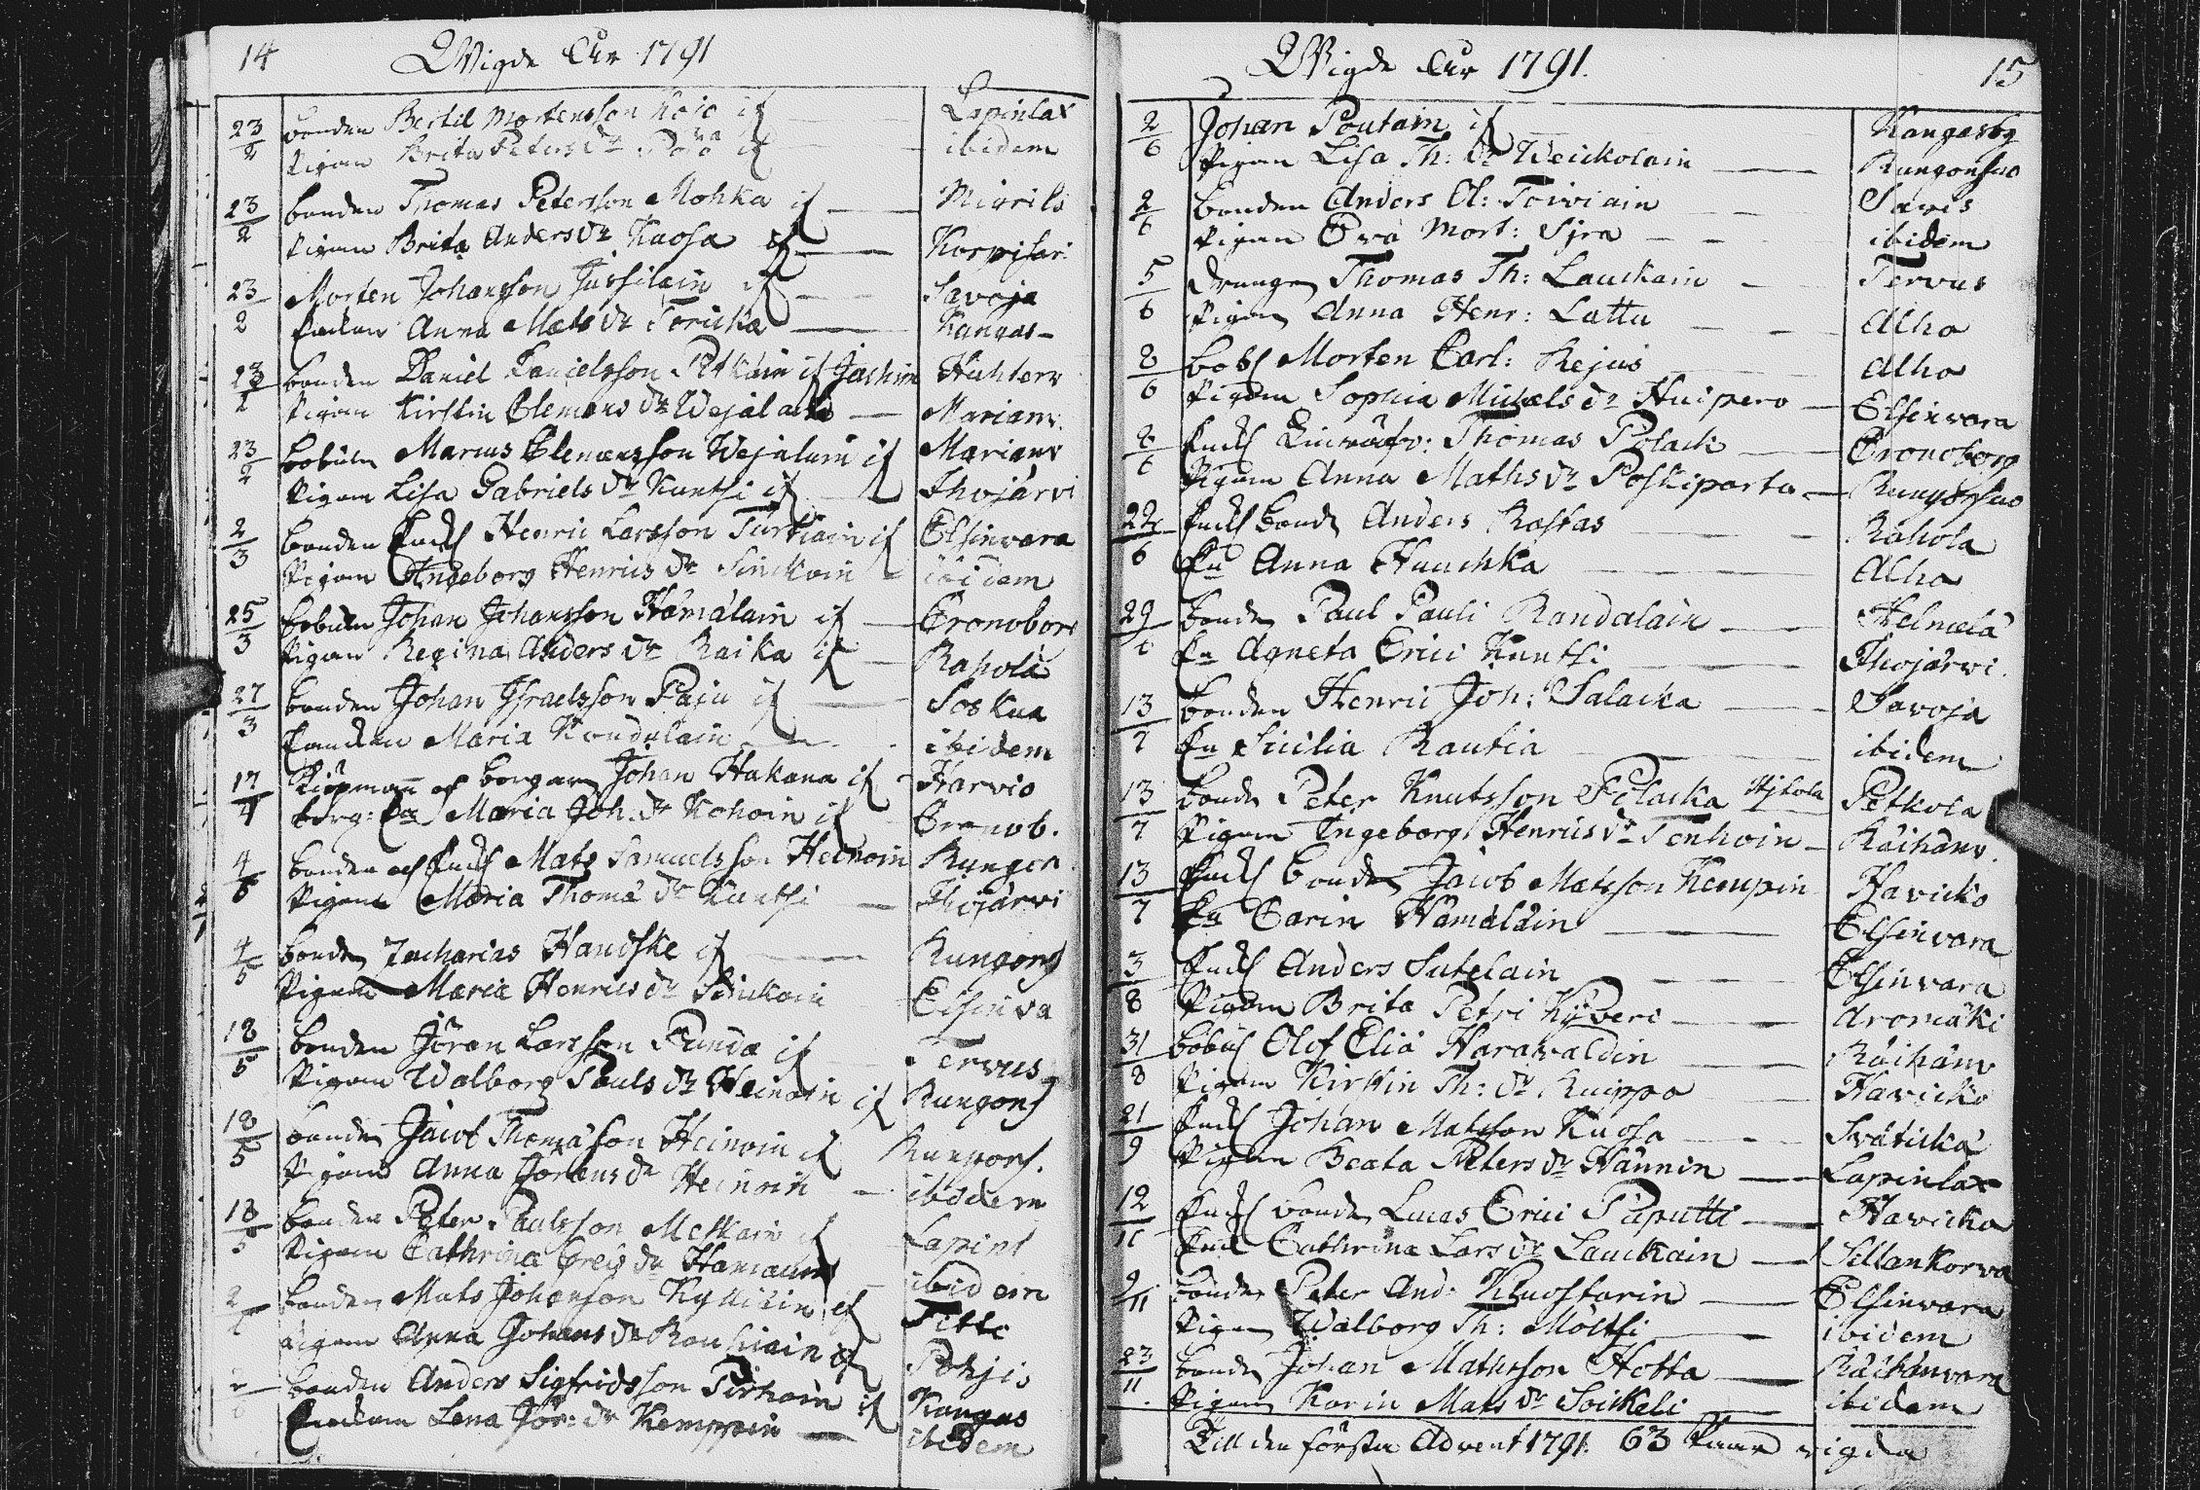 14 Wigde Åhr 1791
23/2 bonden Bertil Mortensson Kojo if Lapinlax
Pigan Brita Peters dr ibidem
23/2 bonden Thomas Petersson Mohka if
Pigan Brita Anders dr Kaosa if Korpisari
23/2 Morten Johansson Jussilain if Savoja
Enkan Anna Mats dr Toricka Kangas
23/2 bonden Daniel Danielsson Pitkäin if
Pigan Kirstin Clemens dr Wejalain Marianv.
23/2 bobüln Marcus Clemensson Wejalain if Marianv
Pigan Lisa Gabriels dr Kuntsi if Ihojärvi
2/3 bonden Enkl Henric Larsson Turkiain if Elsinvara
Pigan Ingeborg Henrics dr Sinckoin ibidem
25/3 bobüln Johan Johansson Hämäläin if Cronobor
Pigan Regina Anders dr Raika if Rahola
27/3 bonden Johan Israelsson Paju if Soskua
Enckan Maria Kondulain ibidem
17/4 Kiöpman of borgarn Johan Hakana if Harvio
borg: Maria Joh. dr Kohoin if Cronob.
4/5 bonden of Enkl Mats Samuelsson Heinoin Rungon
Pigan Maria Thoma dr Kuntsi Ihojärvi
4/5 bonden Zacharias Handske if Rungons
Pigan Maria Henrics dr Sinckoin Elsinva
18/5 bonden Jöran Larsson Punda if Tervus
Pigan Walborg Pauls dr Heinoin if Rungons
18/5 bonden Jacob Thomasson Heinoin if Rungons.
Pigan Anna Jörans dr Heinoin ibidem
18/5 bonden Peter Paulsson Metkain if Lapinl
Pigan Cathrina Greis dr ibidem
2/6 bonden Mats Johansson Kylliäin if
Pigan Anna Johans dr Rouhiain if Pohjis
bonden Anders Sigfridsson Tirhoin if Kangas
Enckan Lena Jör: dr Kemppin ibidem
Wigde Åhr 1791. 15
2/6 Johan Poutain if Kangasby
Pigan Lisa Th: dr Weickolain Rungonsuo
2/6 bonden Anders Ol: Toiviain Savis
Pigan Eva Mort: Sjra ibidem
5/6 Drängn Thomas Th: Lauckain Tervus
Pigan Anna Henr: Lattu Alho
8/6 bobl Morten Carl: Rejus Alho
Pigan Sophia Michels dr Huipero Elsinvara
8/6 Enkl Thomas Polack Cronoborg
Pigan Anna Maths dr Poskiparta Rungonsuo
22/6 Enkl bond Anders Rastas Rahola
En Anna Huuchka Alho
29/6 bonden Paul Pauli Randalain Helmelä
En Agneta Erici Kuntsi Ihojärvi.
13/7 bonden Henric Joh: Salacka Savoja
En Sicilia Rautia ibidem
13/7 bonden Peter Knutsson Pelacka Hjtola Petkola
Pigan Ingeborg Henrics dr Tenhoin Räihänv.
13/7 Enkl bonden Jacob Matsson Kempin Havicko
En Carin Hämäläin Elsinvara
3/8 Enkl Anders Sutelain Elsinvara
Pigan Brita Petri Kÿveri Aromäki
31/8 bobül Olof Eliä Harakaldin Räihänv
Pigan Kirstin Th: dr Kuippo Havicko
21/9 Enkl Johan Matsson Kuosa Svätickä
Pigan Beata Peters dr Hännin Lapinlax
12/10 Enkl bonden Lucas Erici Paputti Havicko
Enk Cathrina Lars dr Lauckain Sillankorva
9/11 bonden Peter And: Kluostarin Elsinvara
Pigan Walborg Th: Möltsi ibidem
23/11 bonden Johan Mathsson Hotta Räihänvara
Pigan Karin Mats dr Soickeli ibidem
Till den första Advent 1791. 63 Paar vigda